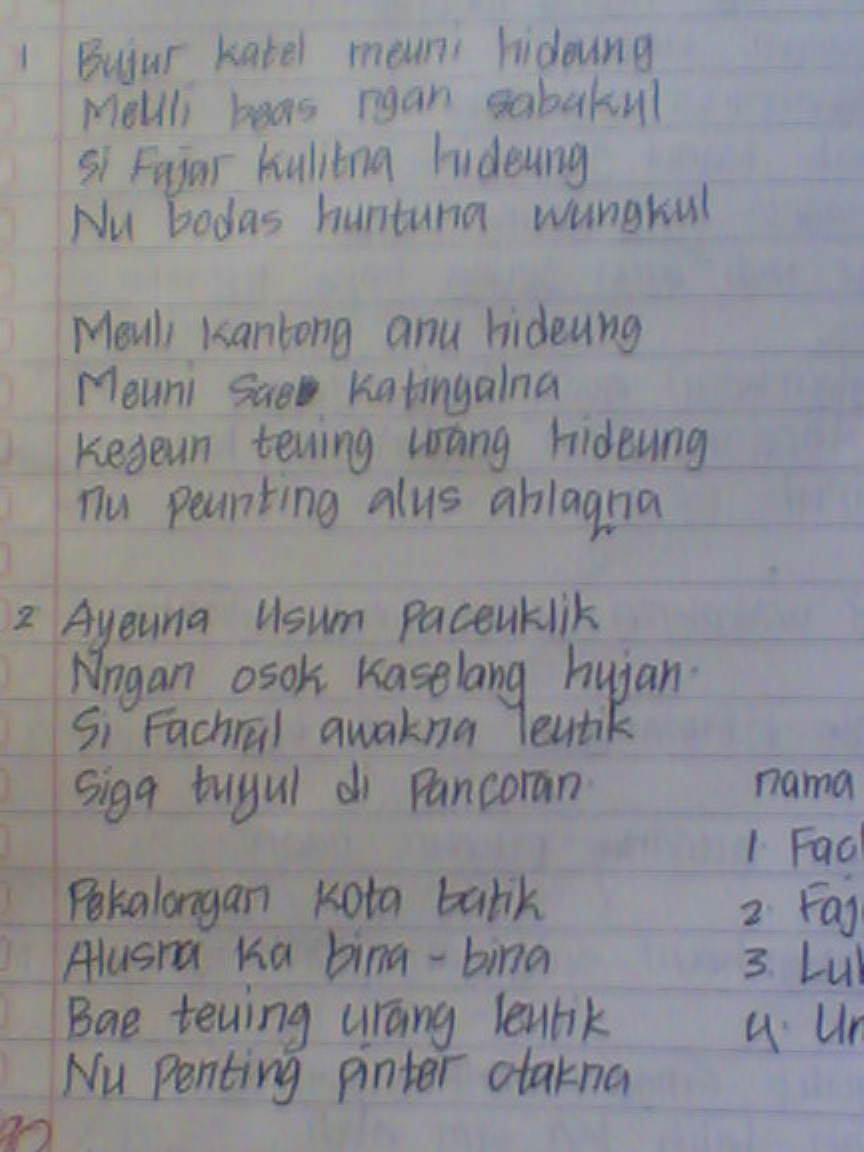 1 Bujur katel meuni hideung
Meuli beas ngan sabakul
Si Fajar kulitna hideung
Nu bodas huntuna wungkul
Meuli kantong anu hideung
Meuni Sae katingalna
Kejeun teuing urang hideung
nu peunting alus ahlaqna
2 Ayeuna Usum paceuklik
Nngan osok kaselang hujan.
Si Fachrul awakna leutik
Siga tuyul di pancoran.
nama
1 Fac
Pekalongan kota batik
2. Faj
Alusna ka bina-bina
3. Lu
Bae teuing urang leutik
4. Un
Nu penting pinter otakna